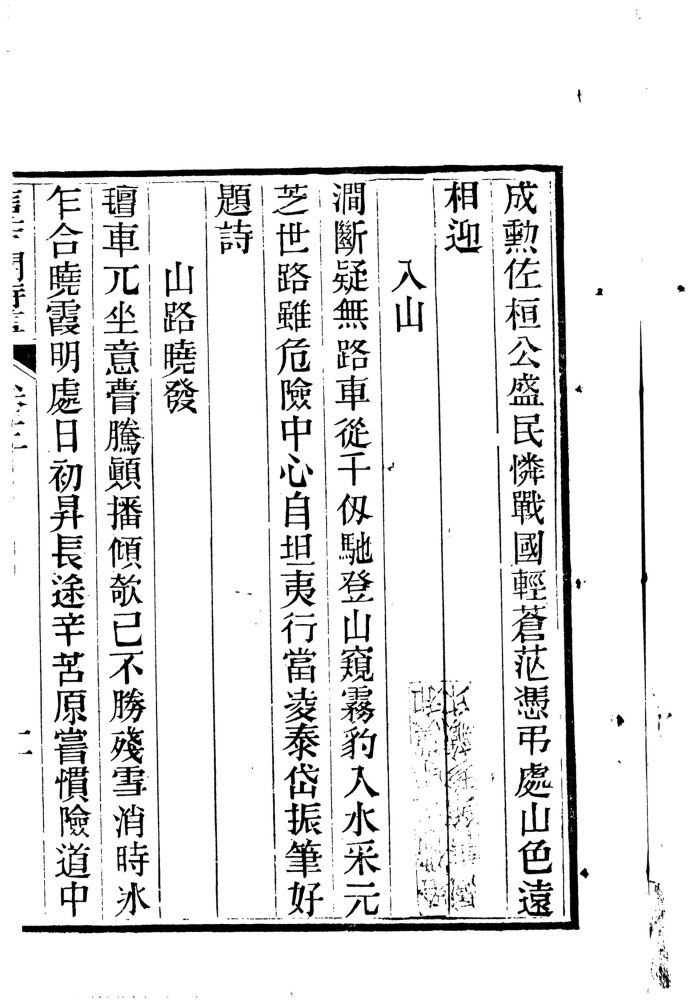 成勲佐桓公盛民憐戰國輕蒼茫憑弔處山色遠
相迎
入山
澗斷疑無路車從千仭馳登山窺霧豹入水采元
芝世路雖危險中心自坦夷行當凌泰岱振筆好
題詩
山路曉發
車兀坐意瞢騰顚播傾欹已不勝殘雪消時冰
乍合曉霞明處日初昇長途辛苦原嘗慣險道中